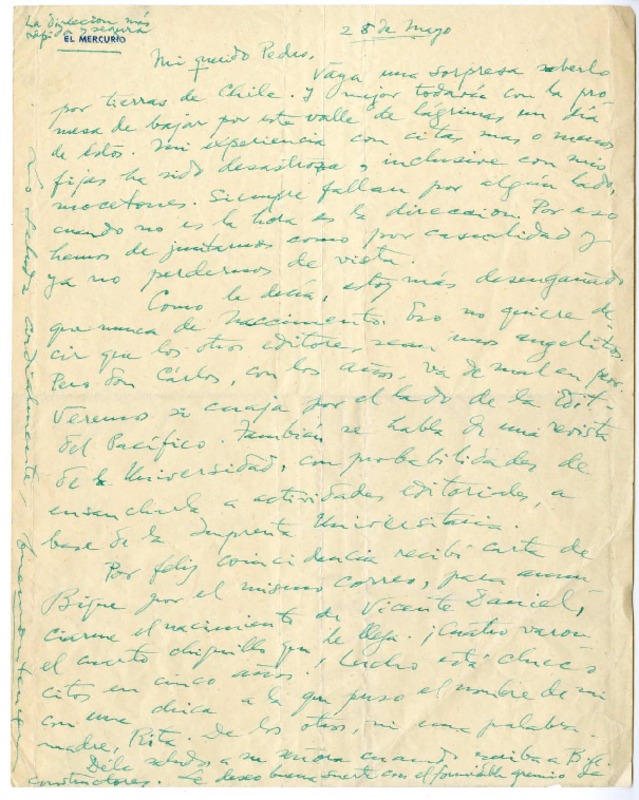 La dirección más
rápida y segura
EL MERCURIO
28 de Mayo
Mi querido Pedro,
Vaya una sorpresa saberlo
por tierras de Chile. Y mejor todavía con la pro
mesa de bajar por este valle de lágrimas un día
de estos. Mi experiencia con citas mas o menos
fijas ha sido desastrosa, inclusive con mis
mocetones. Siempre fallan por algún lado,
cuando no es la hora es la direccion. Por eso
hemos de juntarnos como por casualidad y
ya no perdernos de vista.
Como le decía, estoy más desengañado
que nunca de Nascimento. Eso no quiere de-
cir que los otros editores, sean unos angelitos.
Pero don Cárlos, con los años, va de mal en peor.
Veremos si cuaja por el lado de la Edit-
del Pacífico. También se habla de una revista
de la Universidad, con probabilidades de
ensancharla a actividades editoriales, a
base de la Imprenta Universitaria.
Por feliz coincidencia recibí carta de
Bigue por el mismo correo, para anun
ciarme el nacimiento de Vicente Daniel,
el cuarto chiquillo que le llega. ¡Cuatro varon
citos en cinco años! Lucho está chocho
con una chica a la que puso el nombre de mi
madre, Rita. De los otros, ni una palabra.
Déle saludos a su señora cuando escriba a
constructores. Le deseo buena suerte con el formidable gremio de
Lo saluda cordialmente,